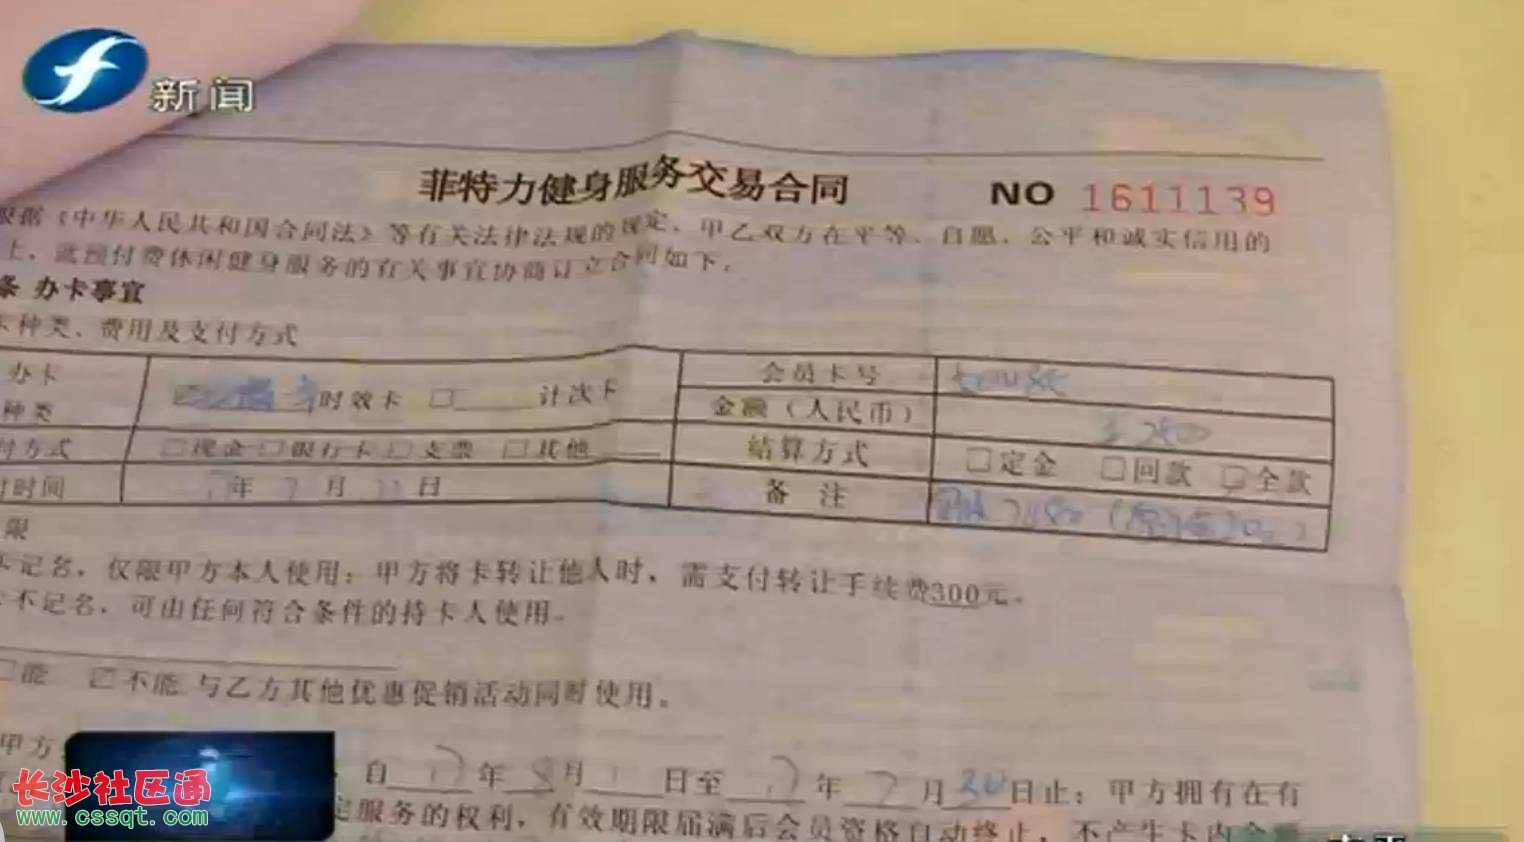 新闻
菲特力健身服务交易合同 NO 1611139
根据《中华人民共和国合同法》等有关法律法规的规定，甲乙双方在平等、自愿、公平和诚实信用的
上，就预付费休闲健身服务的有关事宜协商订立合同如下：
条 办卡事宜
种类、费用及支付方式
办卡
种类
时效卡 □ 计次卡
会员卡号
金额（人民币）
付方式 □现金 □银行卡 □支票 □其他
结算方式 □定金 □回款 □全款
时间 年 7 月 日
备 注
限
记名，仅限甲方本人使用；甲方将卡转让他人时，需支付转让手续费300元。
不记名，可由任何符合条件的持卡人使用。
□能 ☑不能 与乙方其他优惠促销活动同时使用。
甲方 自 17 年 8 月 1 日至 年 7 月 30 日止；甲方拥有在有
定服务的权利，有效期限届满后会员资格自动终止，不产生卡内余额
长沙社区通
www.cssqt.com